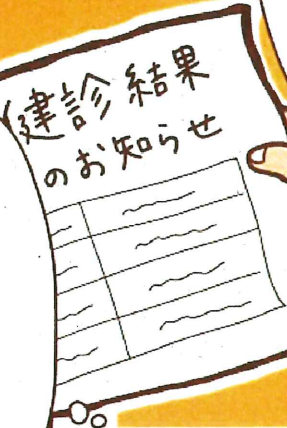 健診結果
のお知らせ